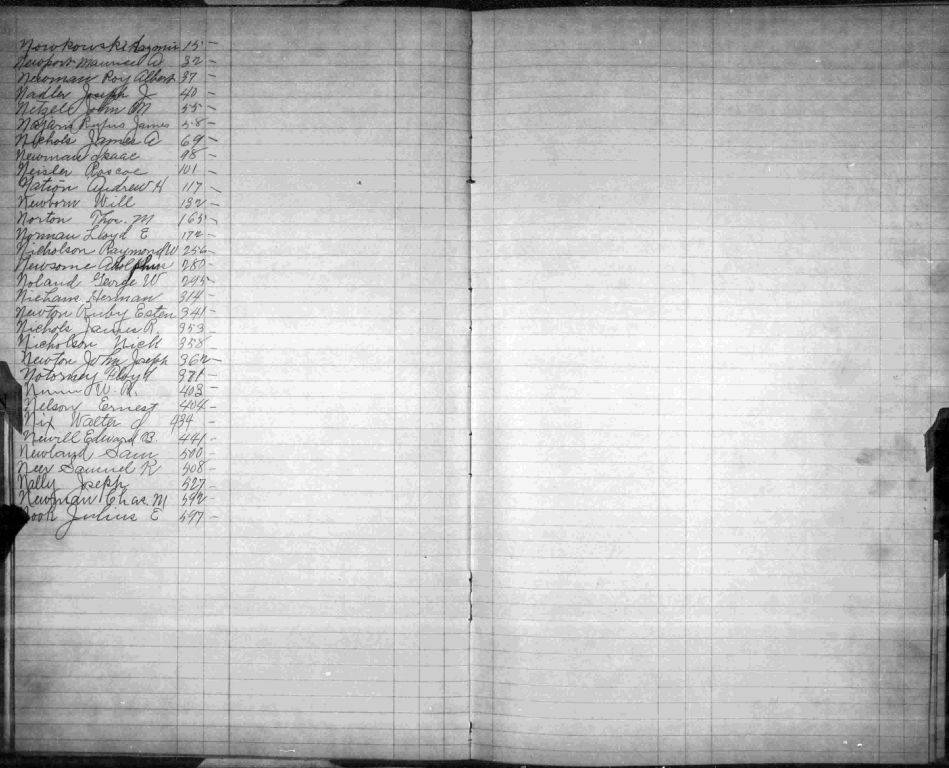 Nowkowski Kazmir 15 -
Newport Maurice A 32 -
Newman Roy Albert 37 -
Nadler Joseph J 40 -
Netzell John M 55 -
Rufus James 58 -
Nichols James A 69 -
Newman Isaac 98 -
Neisler Roscoe 101 -
Nation Andrew H 117 -
Newborn Will 132 -
Norton Thos. M 165 -
Norman Lloyd E 172 -
Nicholson Raymond W 256 -
Newsome Adolphus 280 -
Noland George W 295 -
Herman 314 -
Newton Ruby Esten 341 -
Nichols James R. 353 -
Nicholson Nick 358 -
Newton John Joseph 362 -
Floyd 371 -
Nunn W. R. 403 -
Nelson Ernest 404 -
Nix Walter J 434 -
Newill Edward B. 441 -
Newland Sam 500 -
Neer Samuel K 508 -
Nally Joseph 527 -
Newman Chas. M 592 -
Nook Julius E 597 -